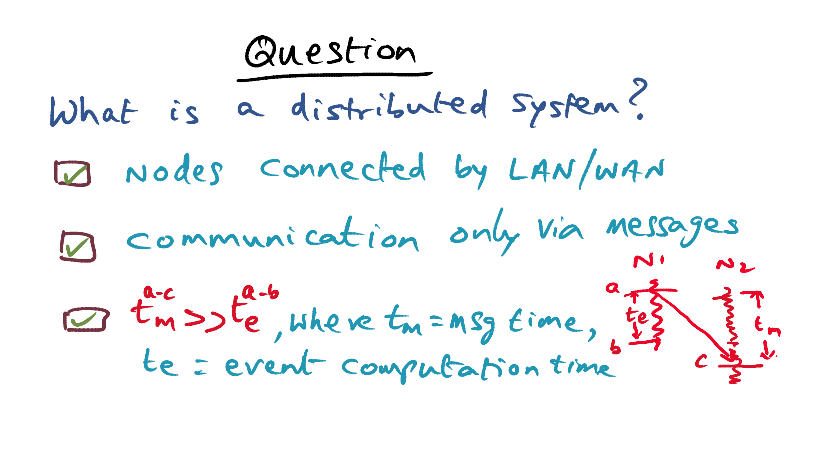 Question
What is a distributed system?
Nodes connected by LAN/WAN
communication only via messages
N1 N2
a-c a-b
tm >> te, where tm = msg time,
te = event computation time
a te tm
b
c